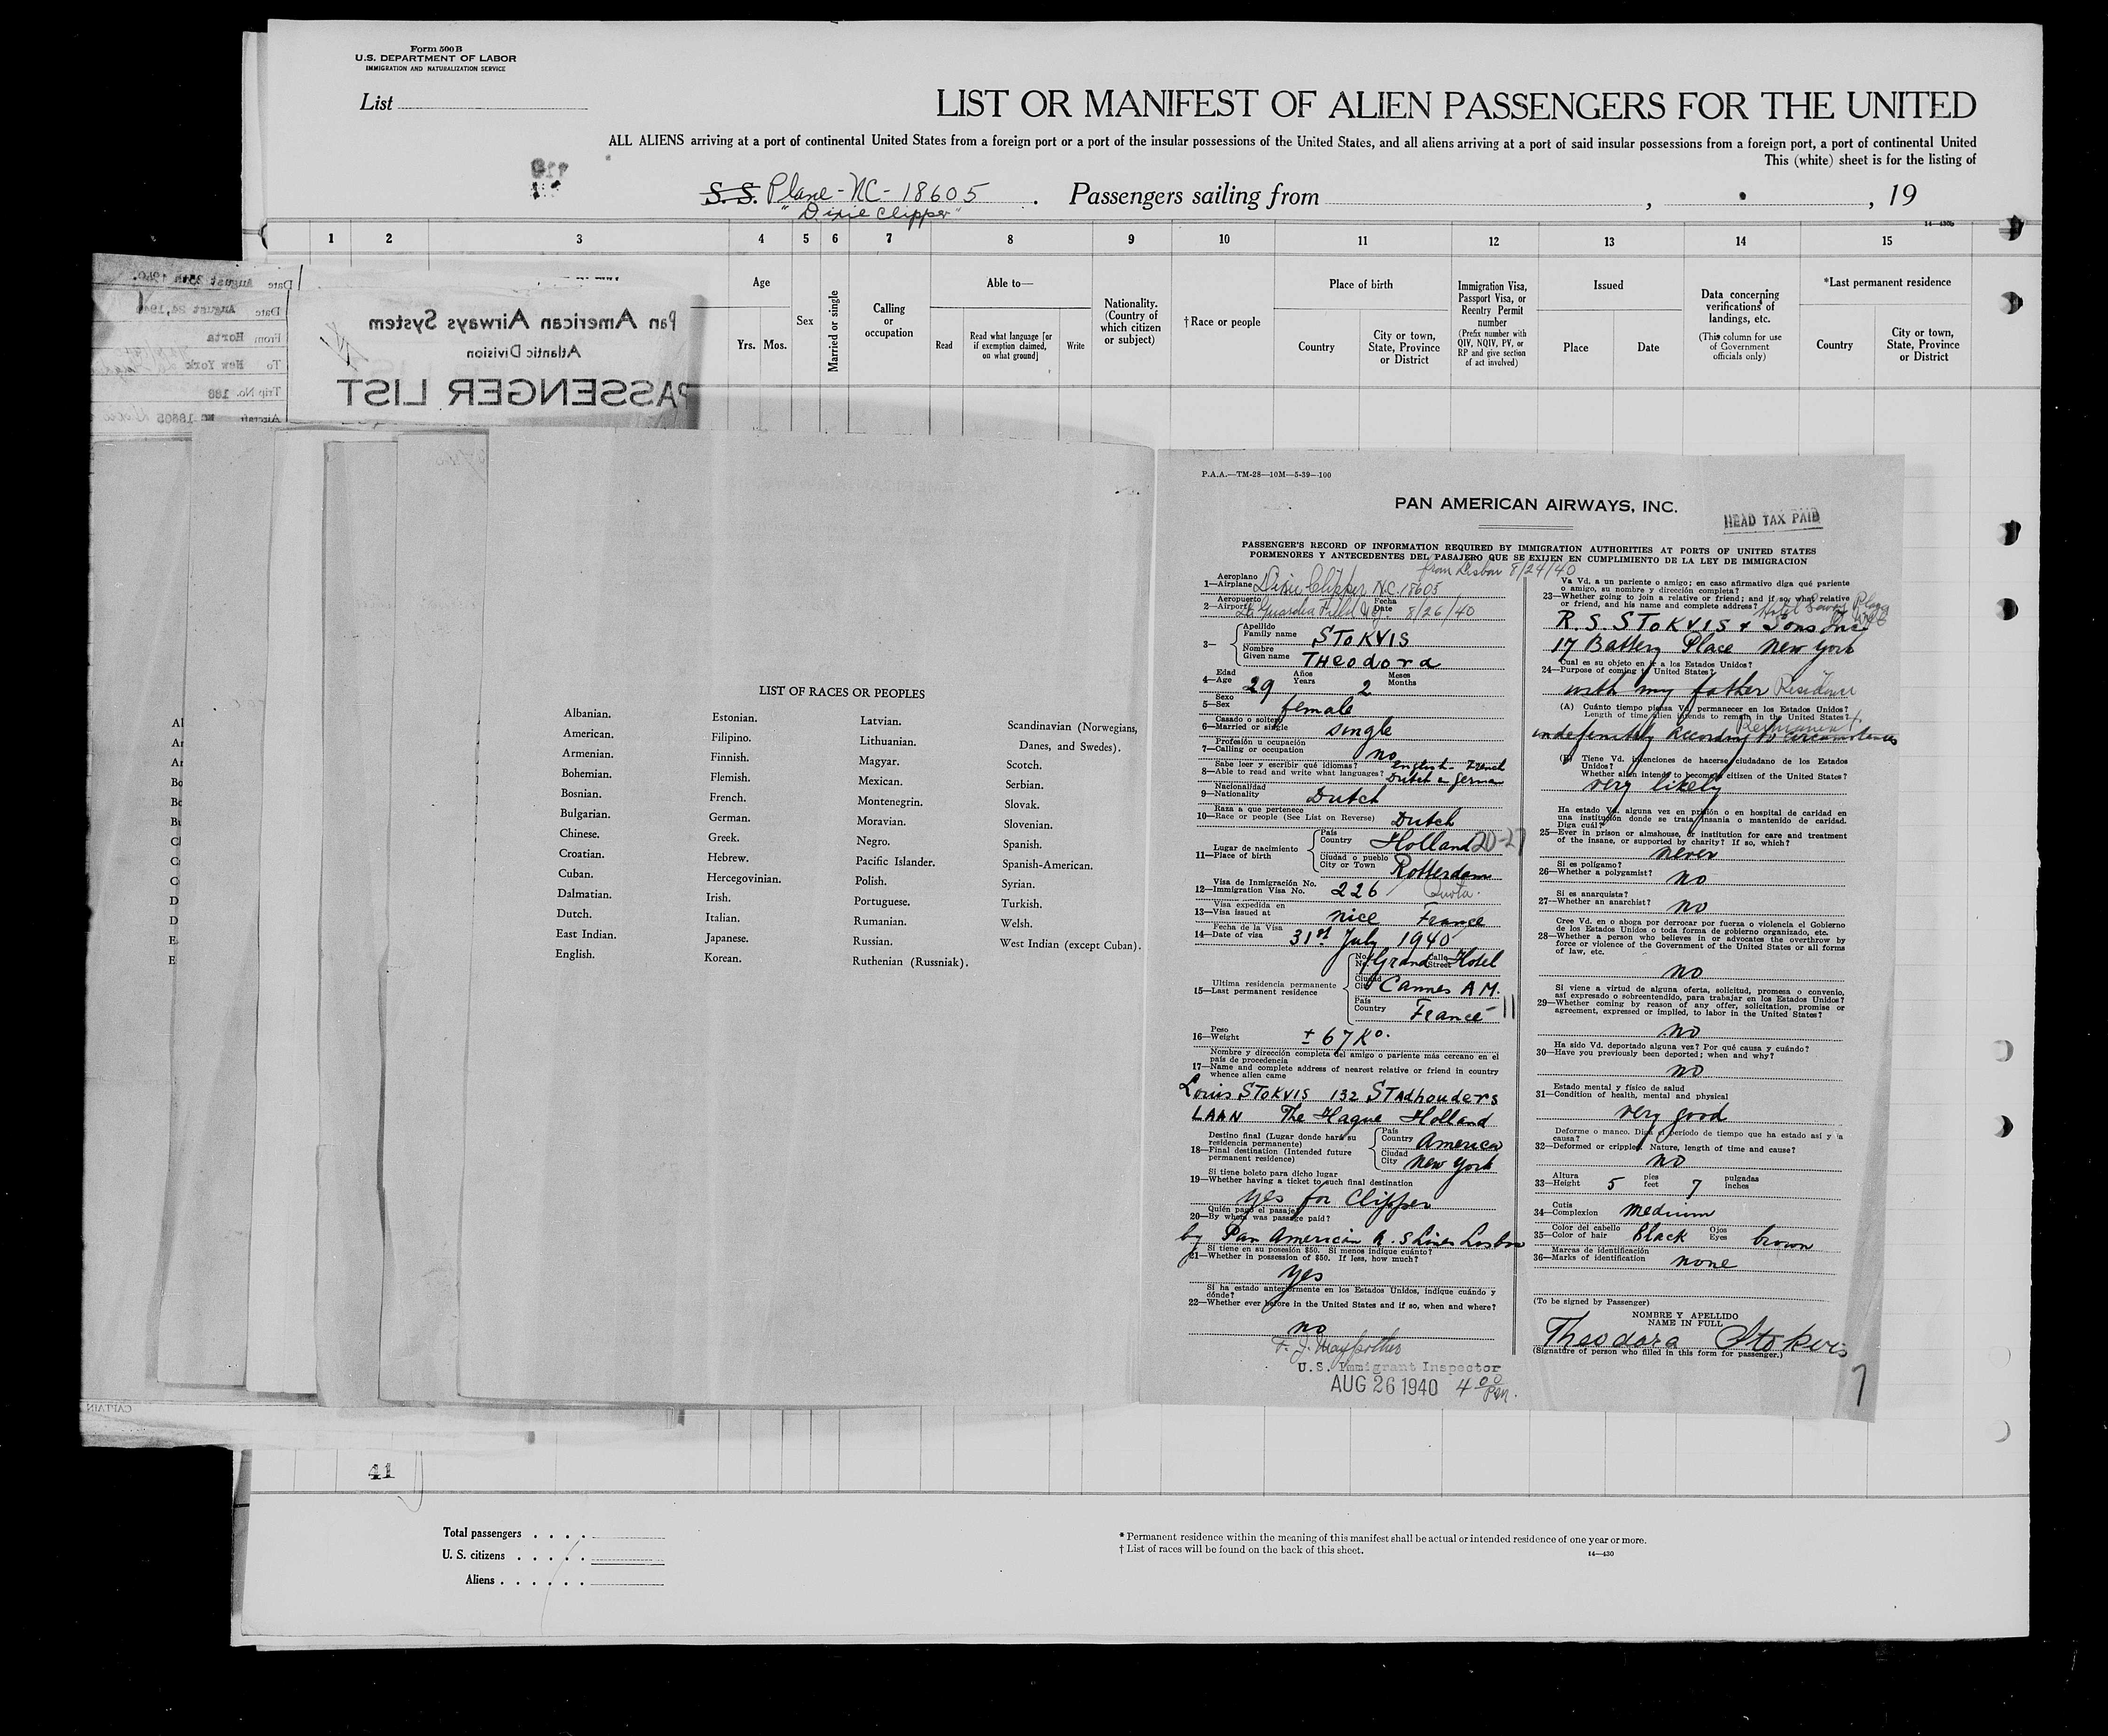 Form 500 B
U.S. DEPARTMENT OF LABOR
IMMIGRATION AND NATURALIZATION SERVICE
List
LIST OR MANIFEST OF ALIEN PASSENGERS FOR THE UNITED
ALL ALIENS arriving at a port of continental United States from a foreign port or a port of the insular possessions of the United States, and all aliens arriving at a port of said insular possessions from a foreign port, a port of continental United
This (white) sheet is for the listing of
S.S. Plane - NC - 18605 . Passengers sailing from , , 19
"Dixie Clipper"
1 2 3 4 5 6 7 8 9 10 11 12 13 14 15
Age
Yrs. Mos.
Sex
Married or single
Calling or occupation
Able to—
Read
Read what language [or if exemption claimed, on what ground]
Write
Nationality. (Country of which citizen or subject)
†Race or people
Place of birth
Country
City or town, State, Province or District
Immigration Visa, Passport Visa, or Reentry Permit number
(Prefix number with QIV, NQIV, PV, or RP and give section of act involved)
Issued
Place
Date
Data concerning verifications of landings, etc.
(This column for use of Government officials only)
*Last permanent residence
Country
City or town, State, Province or District
Date August 25th 1940.
Date August 24, 1940
From Horta
To New York
Trip No. 188
Aircraft NC 18605
Pan American Airways System
Atlantic Division
PASSENGER LIST
CAPTAIN
LIST OF RACES OR PEOPLES
Albanian.
American.
Armenian.
Bohemian.
Bosnian.
Bulgarian.
Chinese.
Croatian.
Cuban.
Dalmatian.
Dutch.
East Indian.
English.
Estonian.
Filipino.
Finnish.
Flemish.
French.
German.
Greek.
Hebrew.
Hercegovinian.
Irish.
Italian.
Japanese.
Korean.
Latvian.
Lithuanian.
Magyar.
Mexican.
Montenegrin.
Moravian.
Negro.
Pacific Islander.
Polish.
Portuguese.
Rumanian.
Russian.
Ruthenian (Russniak).
Scandinavian (Norwegians,
Danes, and Swedes).
Scotch.
Serbian.
Slovak.
Slovenian.
Spanish.
Spanish-American.
Syrian.
Turkish.
Welsh.
West Indian (except Cuban).
P.A.A.—TM-28—10M—5-39—100
PAN AMERICAN AIRWAYS, INC.
HEAD TAX PAID
PASSENGER'S RECORD OF INFORMATION REQUIRED BY IMMIGRATION AUTHORITIES AT PORTS OF UNITED STATES
PORMENORES Y ANTECEDENTES DEL PASAJERO QUE SE EXIJEN EN CUMPLIMIENTO DE LA LEY DE IMMIGRACION
from Lisbon 8/24/40
Aeroplano
1—Airplane Dixie Clipper N.C. 18605
Aeropuerto Fecha
2—Airport La Guardia Field N.Y. Date 8/26/40
3— Apellido
Family name STOKVIS
Nombre
Given name THeodora
Edad Años Meses
4—Age 29 Years 2 Months
Sexo
5—Sex female
Casado o soltero
6—Married or single single
Profesión u ocupación
7—Calling or occupation no
Sabe leer y escribir qué idiomas? English - French
8—Able to read and write what languages? Dutch - German
Nacionalidad
9—Nationality Dutch
Raza a que pertenece
10—Race or people (See List on Reverse) Dutch
Lugar de nacimiento
11—Place of birth
País
Country Holland 20-27
Ciudad o pueblo
City or Town Rotterdam
Visa de Inmigración No.
12—Immigration Visa No. 226 Quota.
Visa expedida en
13—Visa issued at nice France
Fecha de la Visa
14—Date of visa 31st July 1940
Ultima residencia permanente
15—Last permanent residence
No. Calle
No. Grand Street Hotel
Ciudad
City Cannes A M.
País
Country France 11
Peso
16—Weight ± 67 Ko.
Nombre y dirección completa del amigo o pariente más cercano en el país de procedencia
17—Name and complete address of nearest relative or friend in country whence alien came
Louis STOKVIS 132 STadhouders
LAAN The Hague Holland
Destino final (Lugar donde hará su residencia permanente)
18—Final destination (Intended future permanent residence)
País
Country America
Ciudad
City New York
Si tiene boleto para dicho lugar
19—Whether having a ticket to such final destination
yes for Clipper
Quién pagó el pasaje
20—By whom was passage paid?
by Pan American A. S Lines Lisbon
Si tiene en su posesión $50. Si menos indique cuánto?
21—Whether in possession of $50. If less, how much?
yes
Si ha estado anteriormente en los Estados Unidos, indique cuándo y dónde?
22—Whether ever before in the United States and if so, when and where?
no
U.S. Immigrant Inspector
AUG 26 1940 4 00 P.M.
Va Vd. a un pariente o amigo; en caso afirmativo diga qué pariente o amigo, su nombre y dirección completa?
23—Whether going to join a relative or friend; and if so, what relative or friend, and his name and complete address?
Hotel Savoy Plaza
R. S. STOKVIS & Sons Inc
17 Battery Place New York
Cual es su objeto en ir a los Estados Unidos?
24—Purpose of coming to United States?
with my father Residence
(A) Cuánto tiempo piensa Vd. permanecer en los Estados Unidos?
Length of time alien intends to remain in the United States?
Permanent
indefenitely according to circomstences
(B) Tiene Vd. intenciones de hacerse ciudadano de los Estados Unidos?
Whether alien intends to become citizen of the United States?
very likely
Ha estado Vd. alguna vez en prisión o en hospital de caridad en una institución donde se trata insania o mantenido de caridad. Diga cuál?
25—Ever in prison or almshouse, or institution for care and treatment of the insane, or supported by charity? If so, which?
never
Si es polígamo?
26—Whether a polygamist? no
Si es anarquista?
27—Whether an anarchist? no
Cree Vd. en o aboga por derrocar por fuerza o violencia el Gobierno de los Estados Unidos o toda forma de gobierno organizado, etc.
28—Whether a person who believes in or advocates the overthrow by force or violence of the Government of the United States or all forms of law, etc.
no
Si viene a virtud de alguna oferta, solicitud, promesa o convenio, así expresado o sobreentendido, para trabajar en los Estados Unidos?
29—Whether coming by reason of any offer, solicitation, promise or agreement, expressed or implied, to labor in the United States?
no
Ha sido Vd. deportado alguna vez? Por qué causa y cuándo?
30—Have you previously been deported; when and why?
no
Estado mental y físico de salud
31—Condition of health, mental and physical
very good
Deforme o manco. Diga el período de tiempo que ha estado así y la causa?
32—Deformed or crippled. Nature, length of time and cause?
no
Altura pies pulgadas
33—Height 5 feet 7 inches
Cutis
34—Complexion medium
Color del cabello Ojos
35—Color of hair Black Eyes brown
Marcas de identificación
36—Marks of identification none
(To be signed by Passenger)
NOMBRE Y APELLIDO
NAME IN FULL
Theodora Stokvis
(Signature of person who filled in this form for passenger.)
7
41
Total passengers
U. S. citizens
Aliens
* Permanent residence within the meaning of this manifest shall be actual or intended residence of one year or more.
† List of races will be found on the back of this sheet.
14—430